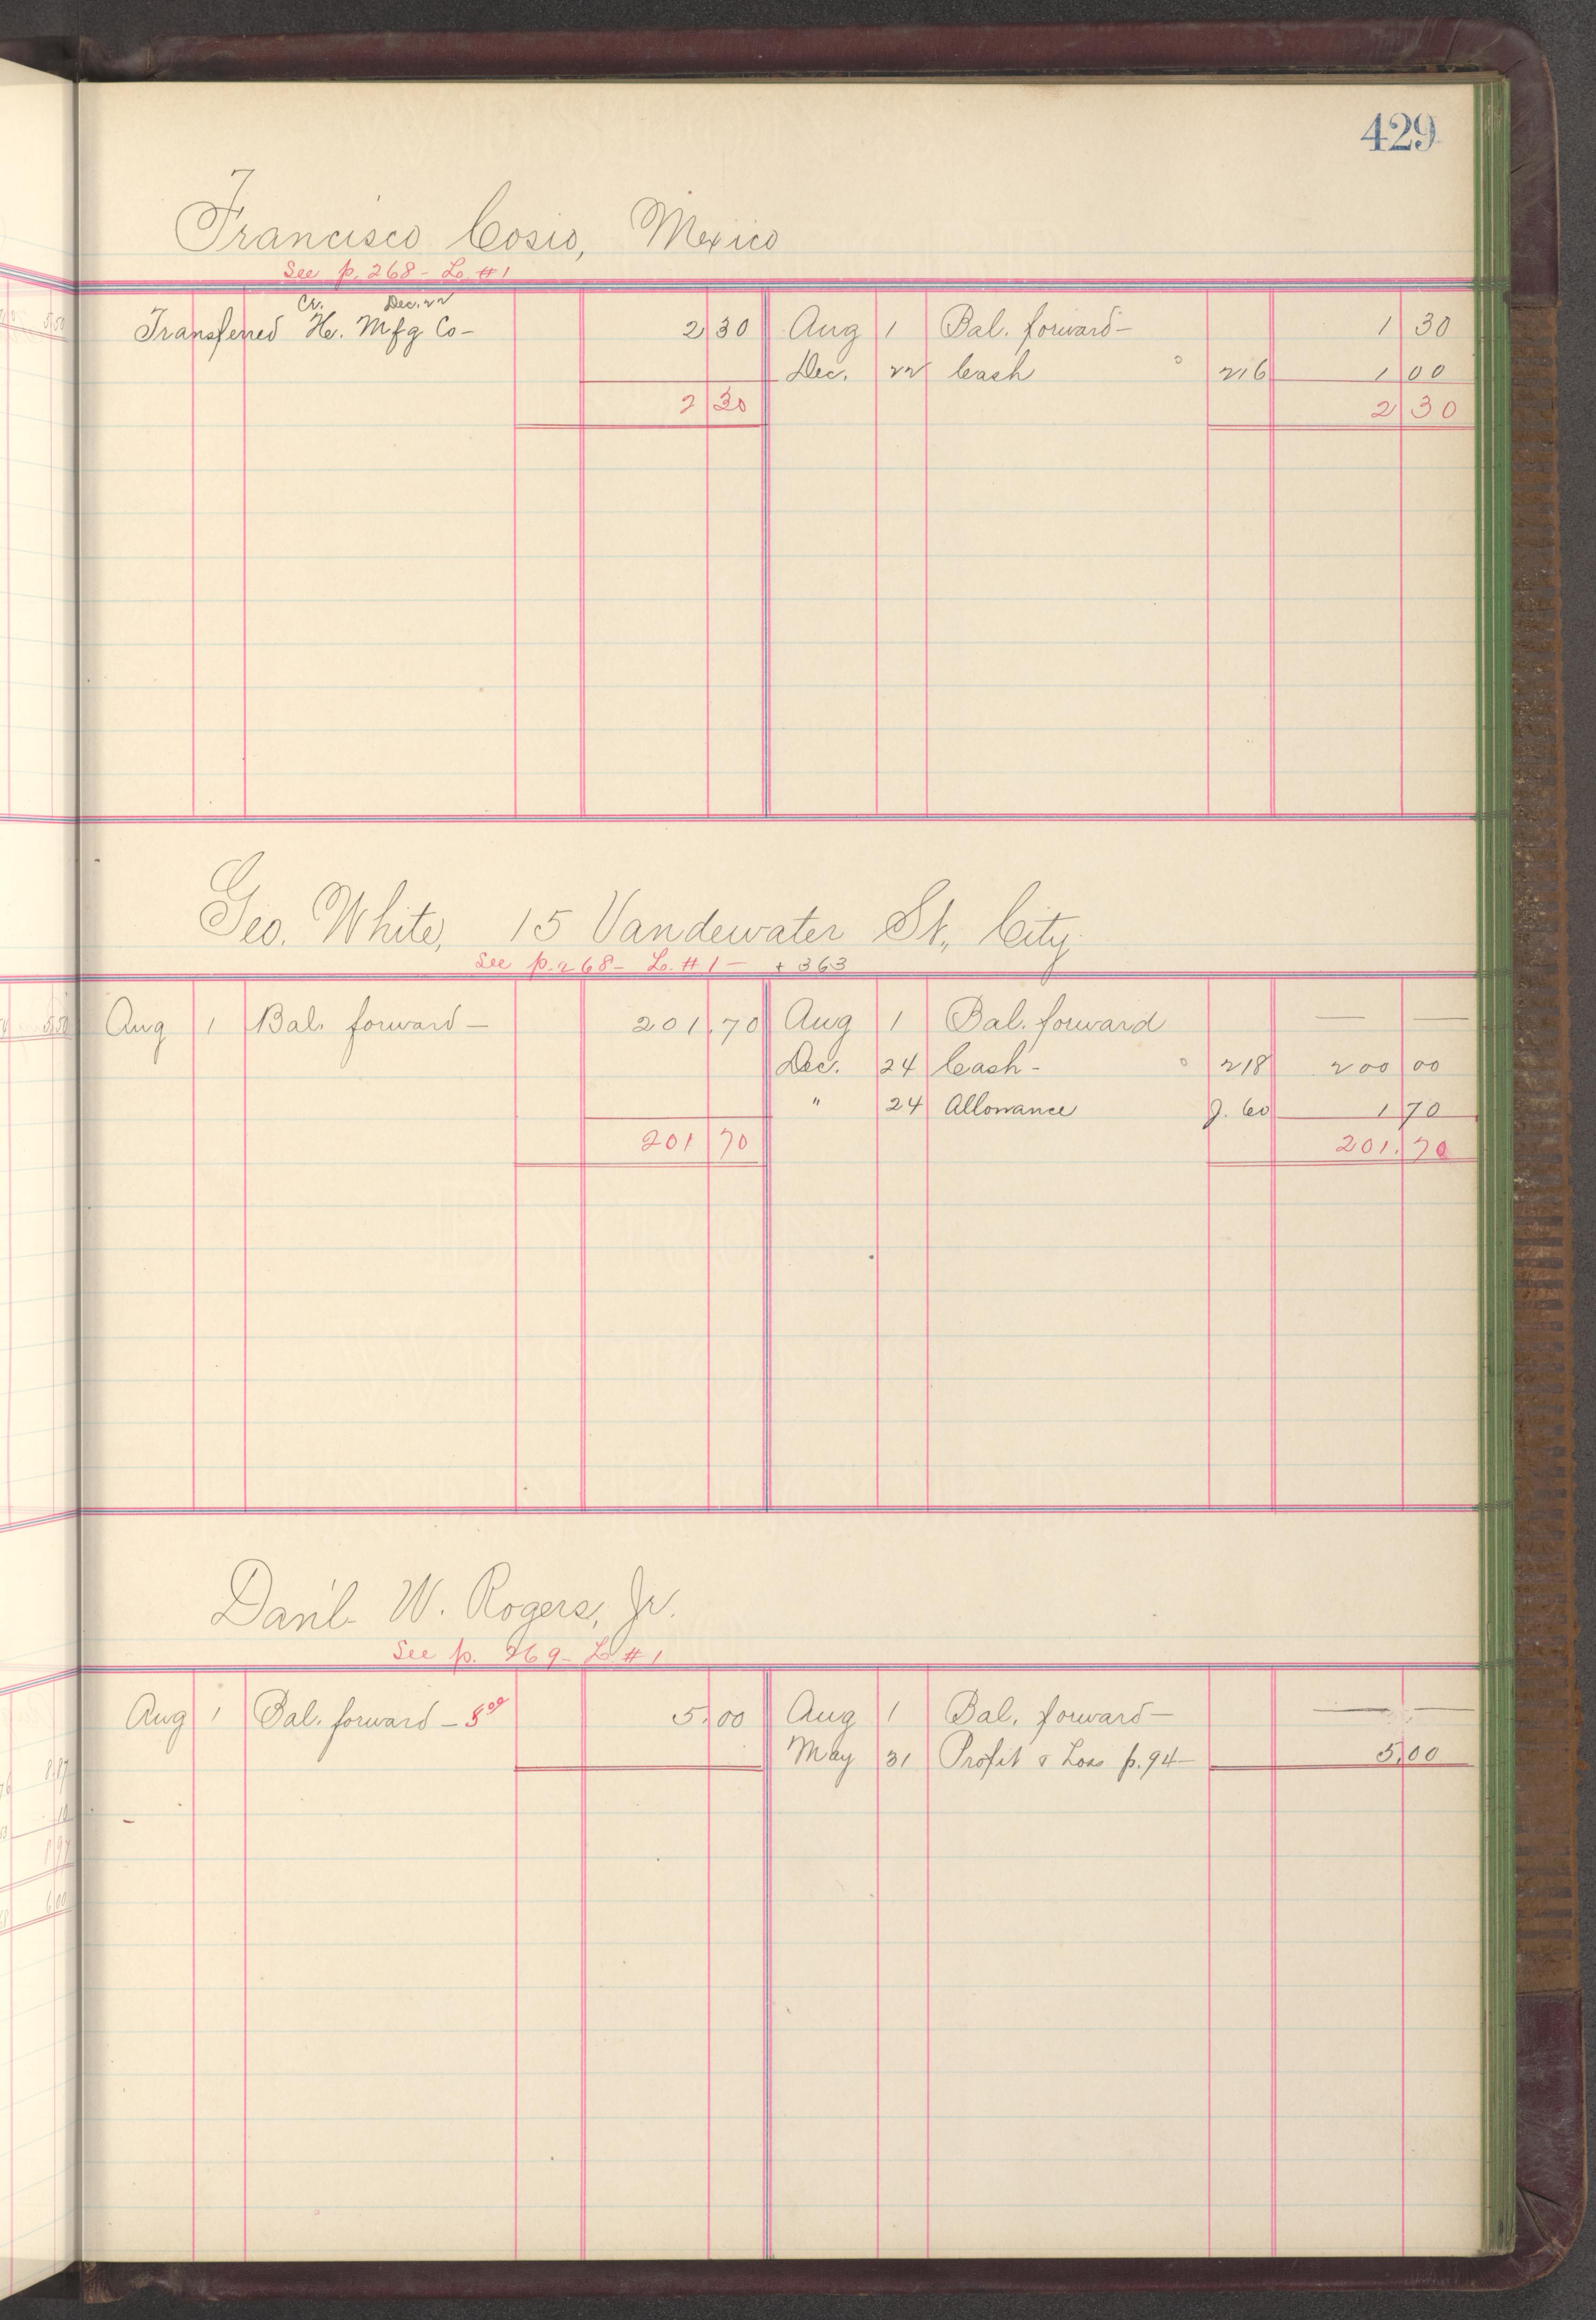 429
Francisco Cosio, Mexico
See p. 268 - L. #1
Cr. Dec. 22
Transferred H. Mfg Co - 2 30 Aug 1 Bal. forward - 1 30
Dec. 22 Cash 216 1 00
2 30 2 30
Geo. White, 15 Vandewater St., City.
See p. 268 - L. #1 - + 363
Aug 1 Bal. forward - 201.70 Aug 1 Bal. forward — —
Dec. 24 Cash - 218 200 00
" 24 Allowance J. 60 1 70
201 70 201.70
Dan'l W. Rogers, Jr.
See p. 269 - L. #1
Aug 1 Bal. forward - 5 00 5.00 Aug 1 Bal. forward - — —
May 31 Profit & Loss p. 94 - 5.00